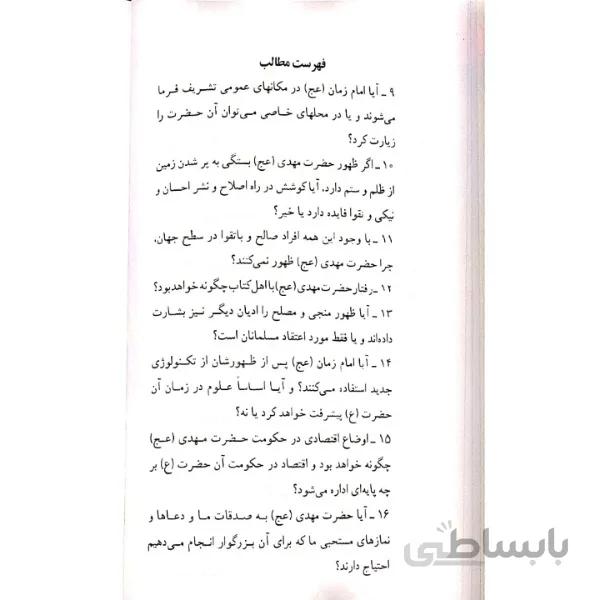 فهرست مطالب
۹ ـ آیا امام زمان (عج) در مکانهای عمومی تشریف فرما
می‌شوند و یا در محلهای خاصی می‌توان آن حضرت را
زیارت کرد؟
۱۰ ـ اگر ظهور حضرت مهدی (عج) بستگی به پر شدن زمین
از ظلم و ستم دارد، آیا کوشش در راه اصلاح و نشر احسان و
نیکی و تقوا فایده دارد یا خیر؟
۱۱ ـ با وجود این همه افراد صالح و باتقوا در سطح جهان،
چرا حضرت مهدی (عج) ظهور نمی‌کنند؟
۱۲ ـ رفتار حضرت مهدی (عج) با اهل کتاب چگونه خواهد بود؟
۱۳ ـ آیا ظهور منجی و مصلح را ادیان دیگر نیز بشارت
داده‌اند و یا فقط مورد اعتقاد مسلمانان است؟
۱۴ ـ آیا امام زمان (عج) پس از ظهورشان از تکنولوژی
جدید استفاده می‌کنند؟ و آیا اساساً علوم در زمان آن
حضرت (ع) پیشرفت خواهد کرد یا نه؟
۱۵ ـ اوضاع اقتصادی در حکومت حضرت مهدی (عج)
چگونه خواهد بود و اقتصاد در حکومت آن حضرت (ع) بر
چه پایه‌ای اداره می‌شود؟
۱۶ ـ آیا حضرت مهدی (عج) به صدقات ما و دعاها و
نمازهای مستحبی ما که برای آن بزرگوار انجام می‌دهیم
احتیاج دارند؟
بابساطی